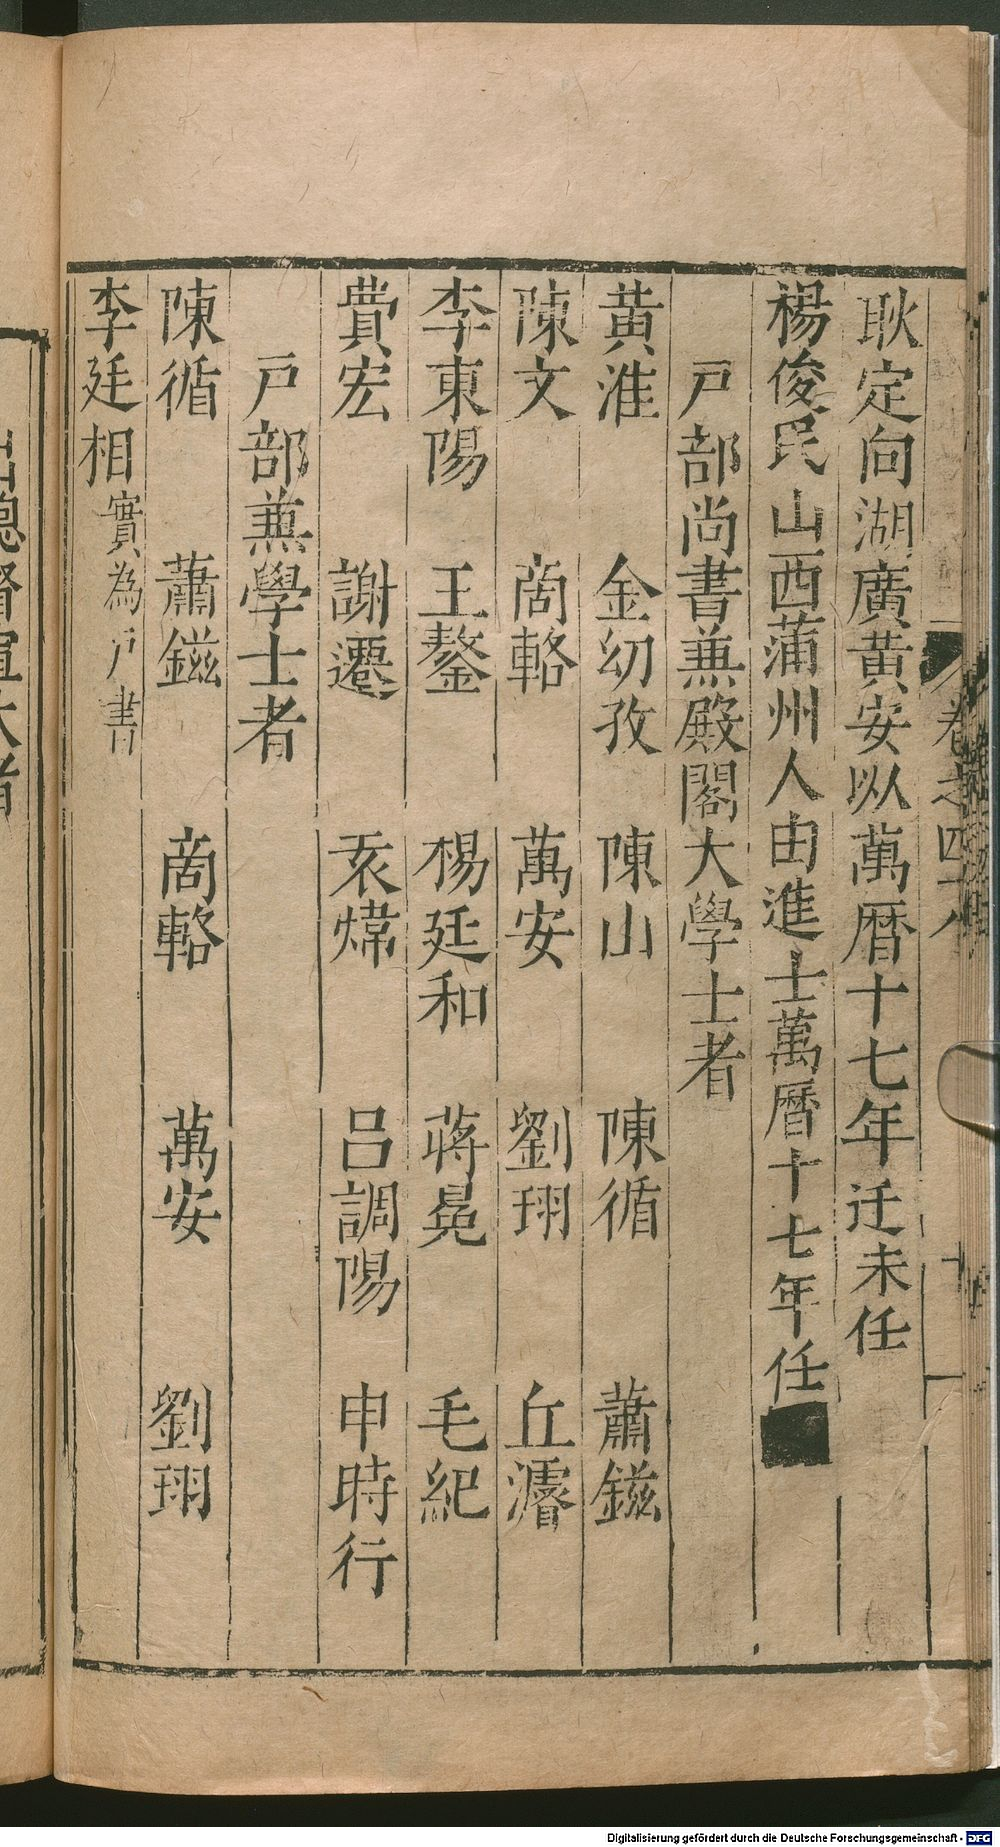 卷之四十八
耿定向湖廣黃安以萬曆十七年迁未任
楊俊民山西蒲州人由進士萬曆十七年任
戶部尚書兼殿閣大學士者
黃淮 金幼孜 陳山 陳循 蕭鎡
陳文 商輅 萬安 劉珝 丘濬
李東陽 王鏊 楊廷和 蔣冕 毛紀
費宏 謝遷 袁煒 呂調陽 申時行
戶部兼學士者
陳循 蕭鎡 商輅 萬安 劉珝
李廷相實為戶書
Digitalisierung gefördert durch die Deutsche Forschungsgemeinschaft - DFG